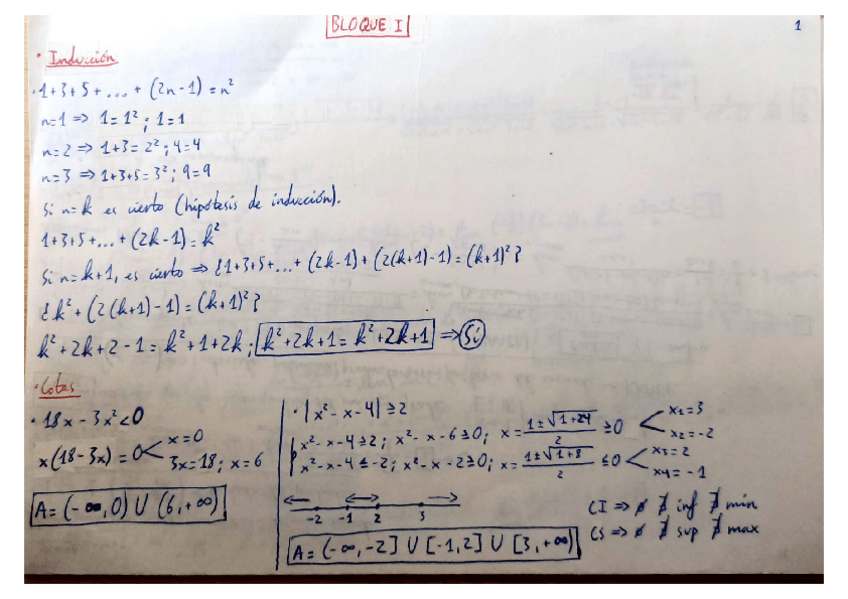 BLOQUE I
1
· Inducción
· 1+3+5+...+(2n-1)=n²
n=1 ⇒ 1=1²; 1=1
n=2 ⇒ 1+3=2²; 4=4
n=3 ⇒ 1+3+5=3²; 9=9
Si n=k es cierto (hipótesis de inducción).
1+3+5+...+(2k-1)=k²
Si n=k+1, es cierto ⇒ ¿1+3+5+...+(2k-1)+(2(k+1)-1)=(k+1)²?
¿k²+(2(k+1)-1)=(k+1)²?
k²+2k+2-1=k²+1+2k; k²+2k+1=k²+2k+1 ⇒ Sí
· Cotas
· 18x-3x²<0
x(18-3x)=0 x=0
3x=18; x=6
A=(-∞,0) U (6,+∞)
· |x²-x-4|≥2
x²-x-4≥2; x²-x-6≥0; x=1±√1+24/2 ≥0 x1=3
x2=-2
x²-x-4≤-2; x²-x-2≥0; x=1±√1+8/2 ≤0 x3=2
x4=-1
-2 -1 2 3
A=(-∞,-2] U [-1,2] U [3,+∞)
CI ⇒ ∅ ∄ inf ∄ min
CS ⇒ ∅ ∄ sup ∄ max